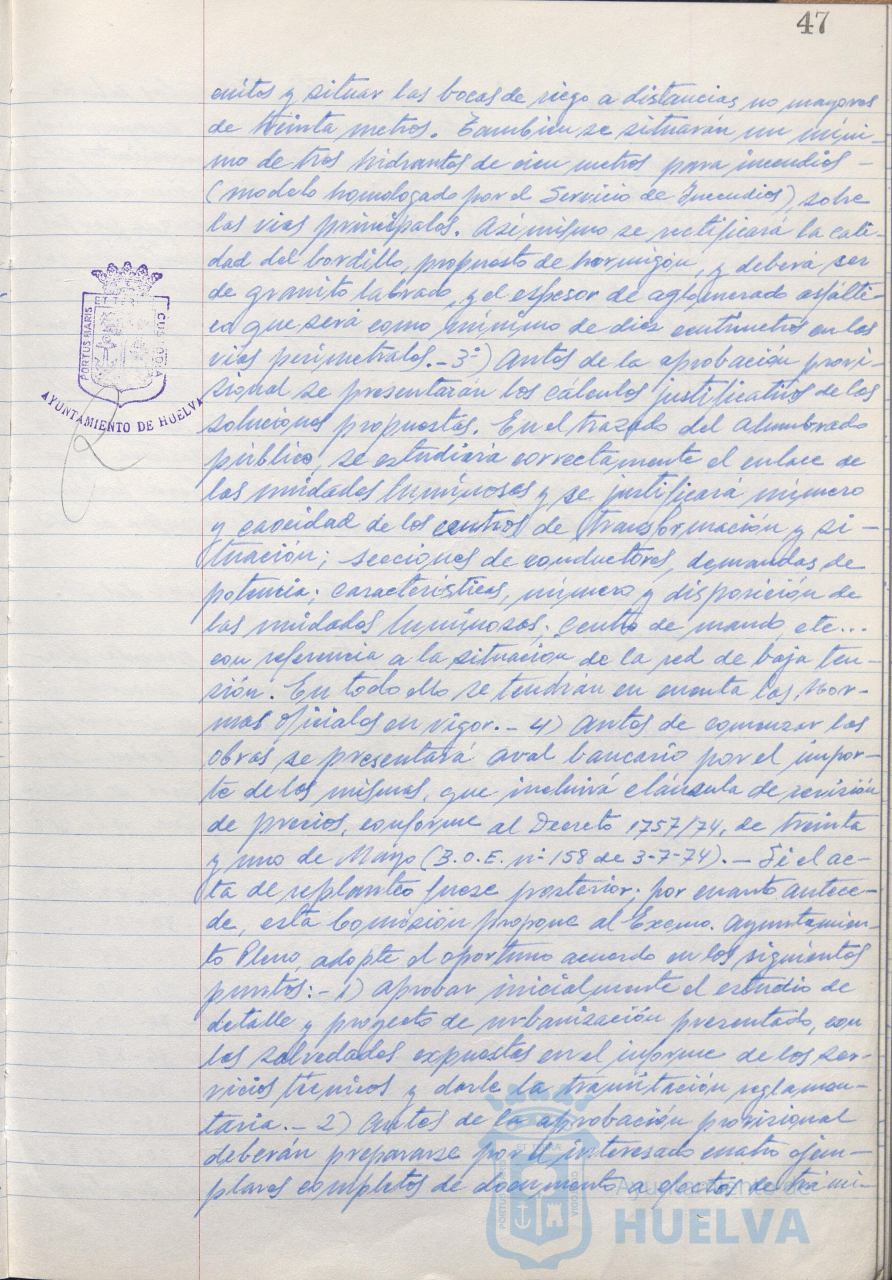 47
cuitos y situar las bocas de riego a distancias no mayores
de treinta metros. También se situarán un míni-
mo de tres hidrantes de cien metros para incendios -
(modelo homologado por el Servicio de Incendios), sobre
las vías principales. Asimismo se rectificará la cali-
dad del bordillo, propuesto de hormigón, y deberá ser
de granito labrado, y el espesor de aglomerado asfálti-
co que será como mínimo de diez centímetros en las
vías perimetrales.- 3º) Antes de la aprobación provi-
sional se presentarán los cálculos justificativos de las
soluciones propuestas. En el trazado del alumbrado
público, se estudiará correctamente el enlace de
las unidades luminosas y se justificará número
y capacidad de los centros de transformación y si-
tuación; secciones de conductores, demandas de
potencia; características, número y disposición de
las unidades luminosas; centro de mando, etc...
con referencia a la situación de la red de baja ten-
sión. En todo ello se tendrán en cuenta las Nor-
mas oficiales en vigor.- 4) Antes de comenzar las
obras se presentará aval bancario por el impor-
te de las mismas, que incluirá cláusula de revisión
de precios, conforme al Decreto 1757/74, de treinta
y uno de Mayo (B.O.E. nº 158 de 3-7-74).- Si el ac-
ta de replanteo fuese posterior; por cuanto antece-
de, esta Comisión propone al Excmo. Ayuntamien-
to Pleno, adopte el oportuno acuerdo en los siguientes
puntos:- 1) Aprobar inicialmente el estudio de
detalle y proyecto de urbanización presentado, con
las salvedades expuestas en el informe de los ser-
vicios técnicos y darle la tramitación reglamen-
taria.- 2) Antes de la aprobación provisional
deberán prepararse por el interesado cuatro ejem-
plares completos de documento a efectos de trámi-
PORTUS MARIS ET TERRAE CUSTODIA
AYUNTAMIENTO DE HUELVA
Ayuntamiento de
HUELVA